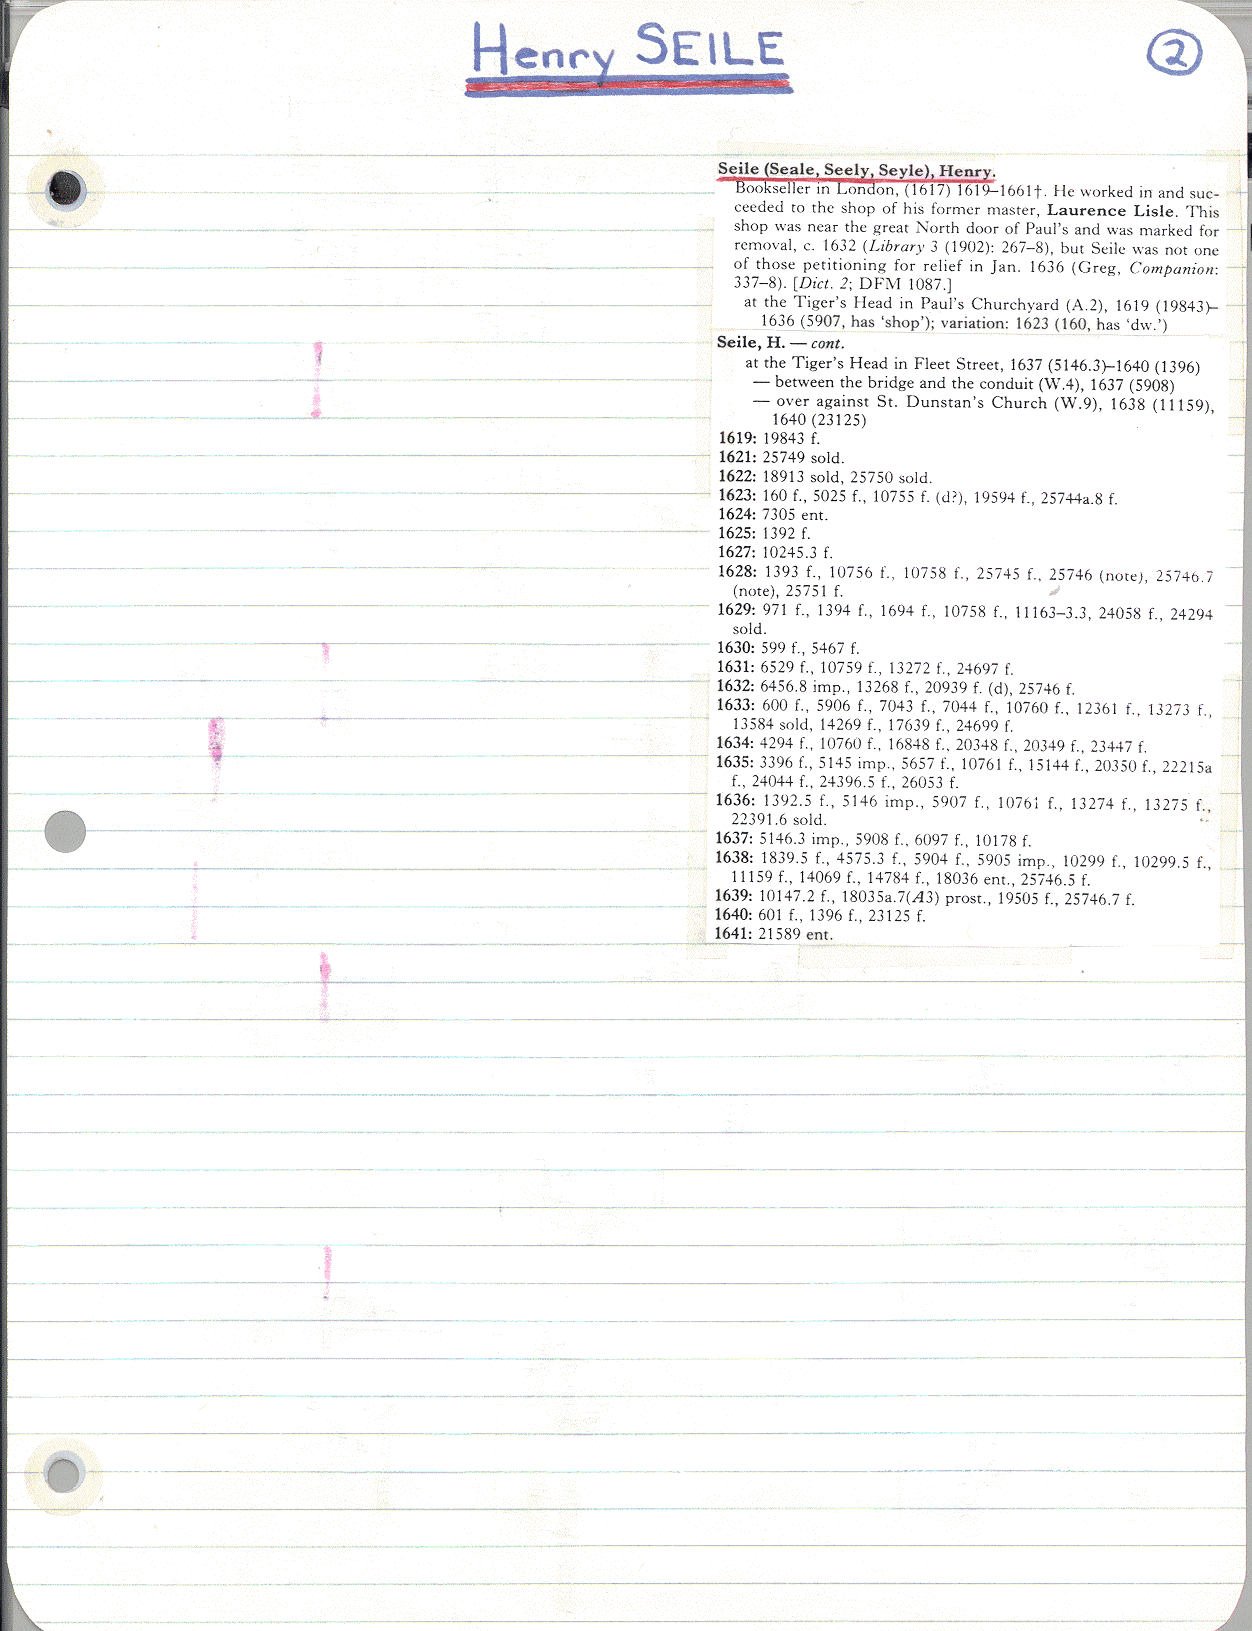 Henry SEILE
2
Seile (Seale, Seely, Seyle), Henry.
Bookseller in London, (1617) 1619–1661†. He worked in and suc-
ceeded to the shop of his former master, Laurence Lisle. This
shop was near the great North door of Paul's and was marked for
removal, c. 1632 (Library 3 (1902): 267–8), but Seile was not one
of those petitioning for relief in Jan. 1636 (Greg, Companion:
337–8). [Dict. 2; DFM 1087.]
at the Tiger's Head in Paul's Churchyard (A.2), 1619 (19843)–
1636 (5907, has 'shop'); variation: 1623 (160, has 'dw.')
Seile, H. — cont.
at the Tiger's Head in Fleet Street, 1637 (5146.3)–1640 (1396)
— between the bridge and the conduit (W.4), 1637 (5908)
— over against St. Dunstan's Church (W.9), 1638 (11159),
1640 (23125)
1619: 19843 f.
1621: 25749 sold.
1622: 18913 sold, 25750 sold.
1623: 160 f., 5025 f., 10755 f. (d?), 19594 f., 25744a.8 f.
1624: 7305 ent.
1625: 1392 f.
1627: 10245.3 f.
1628: 1393 f., 10756 f., 10758 f., 25745 f., 25746 (note), 25746.7
(note), 25751 f.
1629: 971 f., 1394 f., 1694 f., 10758 f., 11163–3.3, 24058 f., 24294
sold.
1630: 599 f., 5467 f.
1631: 6529 f., 10759 f., 13272 f., 24697 f.
1632: 6456.8 imp., 13268 f., 20939 f. (d), 25746 f.
1633: 600 f., 5906 f., 7043 f., 7044 f., 10760 f., 12361 f., 13273 f.,
13584 sold, 14269 f., 17639 f., 24699 f.
1634: 4294 f., 10760 f., 16848 f., 20348 f., 20349 f., 23447 f.
1635: 3396 f., 5145 imp., 5657 f., 10761 f., 15144 f., 20350 f., 22215a
f., 24044 f., 24396.5 f., 26053 f.
1636: 1392.5 f., 5146 imp., 5907 f., 10761 f., 13274 f., 13275 f.,
22391.6 sold.
1637: 5146.3 imp., 5908 f., 6097 f., 10178 f.
1638: 1839.5 f., 4575.3 f., 5904 f., 5905 imp., 10299 f., 10299.5 f.,
11159 f., 14069 f., 14784 f., 18036 ent., 25746.5 f.
1639: 10147.2 f., 18035a.7(A3) prost., 19505 f., 25746.7 f.
1640: 601 f., 1396 f., 23125 f.
1641: 21589 ent.